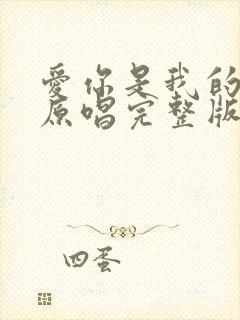 爱你是我的
原唱完整版
四蛋